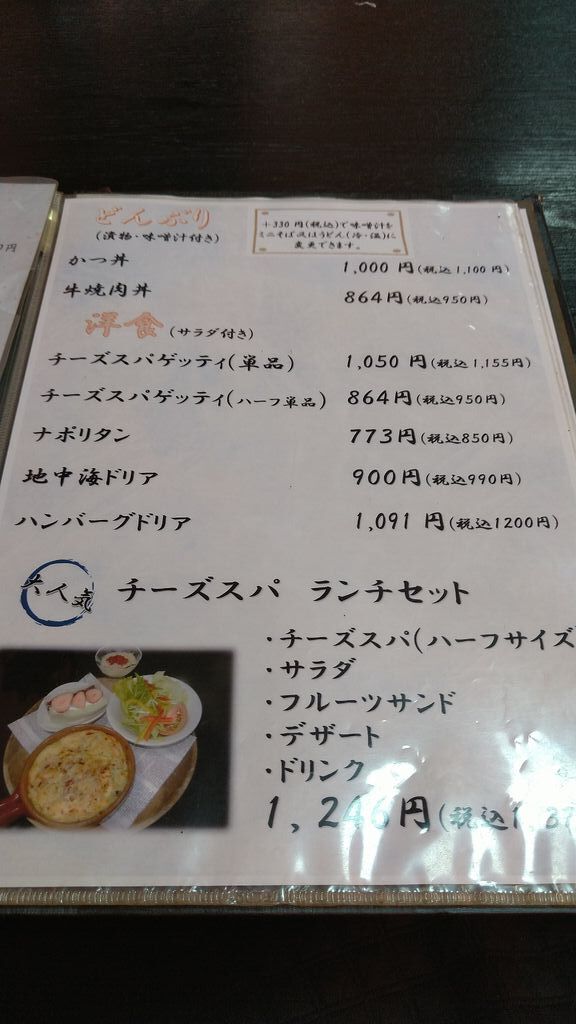 どんぶり
(漬物・味噌汁付き)
+330円(税込)で味噌汁を
ミニそば又はうどん(冷・温)に
変更できます。
かつ丼 1,000円(税込1,100円)
牛焼肉丼 864円(税込950円)
洋食(サラダ付き)
チーズスパゲッティ(単品) 1,050円(税込1,155円)
チーズスパゲッティ(ハーフ単品) 864円(税込950円)
ナポリタン 773円(税込850円)
地中海ドリア 900円(税込990円)
ハンバーグドリア 1,091円(税込1200円)
大人気 チーズスパ ランチセット
・チーズスパ(ハーフサイズ
・サラダ
・フルーツサンド
・デザート
・ドリンク
1,246円(税込